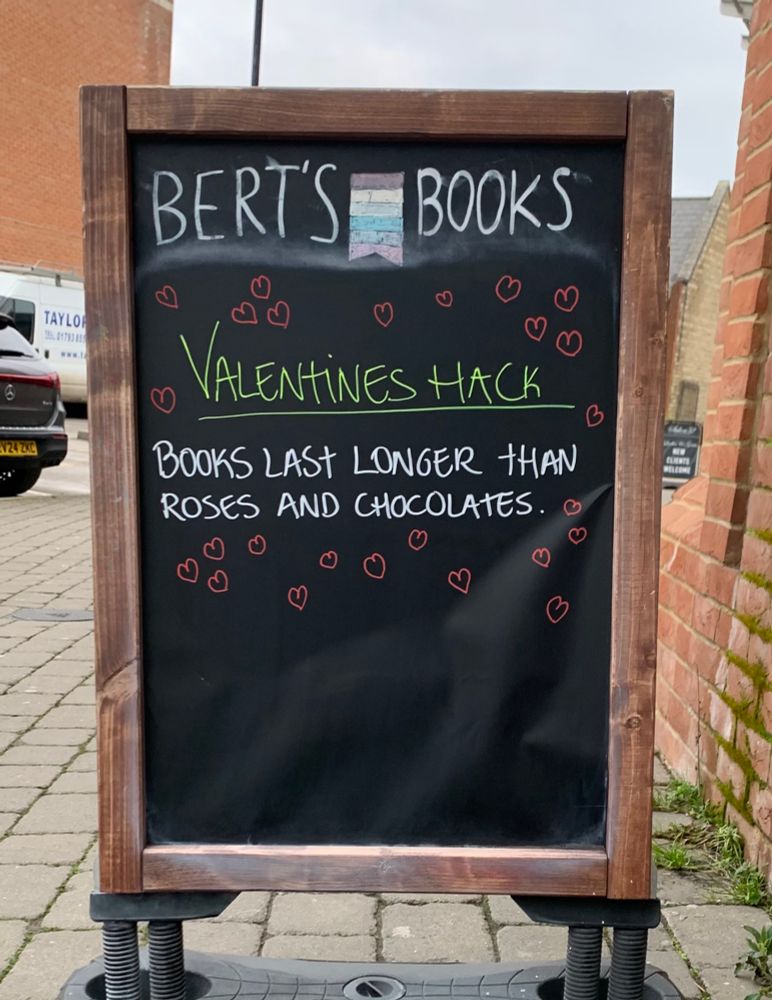 BERT'S BOOKS
VALENTINES HACK
BOOKS LAST LONGER THAN
ROSES AND CHOCOLATES.
TAYLOR
V24 ZKC
NEW
CLIENTS
WELCOME